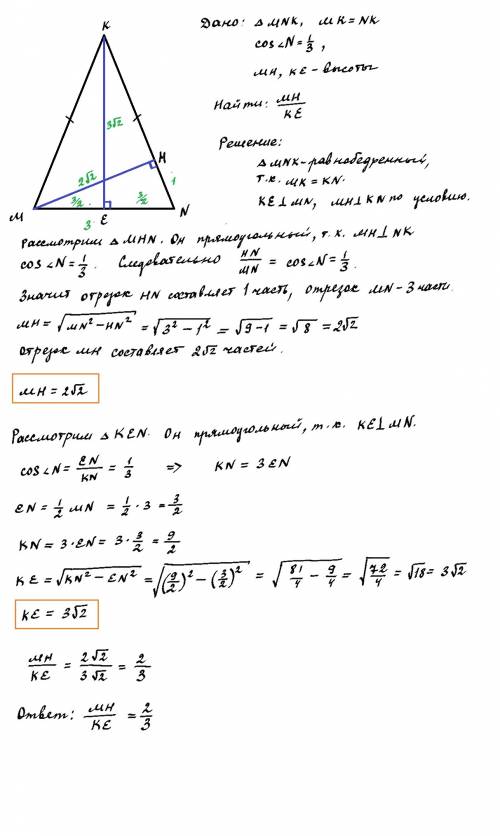 K
3√2
H
1
2√2
3/2
3/2
M
E
N
3
Дано: △MNK, MK=NK
cos∠N=1/3,
MH, KE - высоты
Найти: MH/KE
Решение:
△MNK-равнобедренный,
т.к. MK=KN.
KE⊥MN, MH⊥KN по условию.
Рассмотрим △MHN. Он прямоугольный, т.к. MH⊥NK
cos∠N=1/3. Следовательно HN/MN = cos∠N=1/3.
Значит отрезок HN составляет 1 часть, отрезок MN-3 части.
MH=√(MN²-HN²)=√(3²-1²)=√(9-1)=√8=2√2
Отрезок MH составляет 2√2 частей.
MH=2√2
Рассмотрим △KEN. Он прямоугольный, т.к. KE⊥MN.
cos∠N=EN/KN=1/3 => KN=3EN
EN=1/2 MN=1/2·3=3/2
KN=3·EN=3·3/2=9/2
KE=√(KN²-EN²)=√((9/2)²-(3/2)²)=√(81/4-9/4)=√(72/4)=√18=3√2
KE=3√2
MH/KE=2√2/3√2=2/3
Ответ: MH/KE=2/3